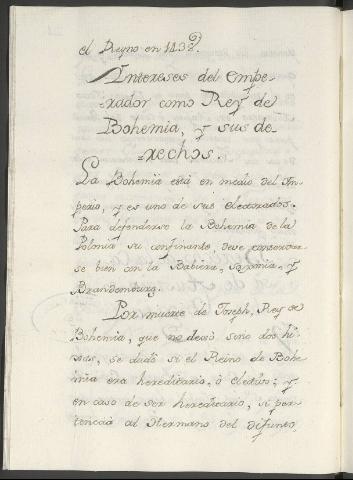 el Reyno en 1439.
Yntereses del Empe-
rador como Rey de
Bohemia, y sus de-
rechos.
La Bohemia está en medio del Ym-
perio, y es uno de sus electorados.
Para defenderse la Bohemia de la
Polonia su confinante deve conservar
se bien con la Babiera, Saxonia, y
Brandemburg.
Por muerte de Joseph, Rey de
Bohemia, que no dexó sino dos hi-
jas, se dudó si el Reino de Bohe
mia era hereditario, ó electivo; y
en caso de ser hereditario, si per-
tenecia al Hermano del difunto,